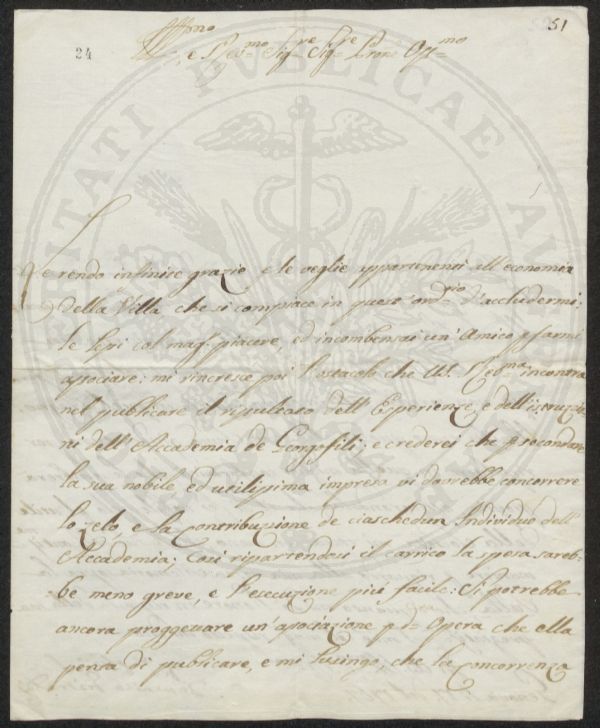 51
24
Affmo
e Rev=mo Sig=re Sig=re Prone Oss=mo
Le rendo infinite grazie e le veglie appartenenti all'economia
della Villa che si compiace in quest'ord=rio d'accludermi;
le lessi col magg. piacere, ed incombensai un'Amico p farmi
associare: mi rincresce poi l'ostacolo che V.S. Rev=ma incontra
nel publicare il ripulcaso dell'Esperienze, e dell'istruzio=
ni dell'Accademia de Georgofili; e crederei che p secondare
la sua nobile ed utilissima impresa vi dovrebbe concorrere
lo zelo, e la contribuzione de ciaschedun Individuo dell'
Accademia; così ripartendosi il carrico la spesa sareb=
be meno greve, e l'esecuzione più facile: Si potrebbe
ancora proggettare un'associazione p l'Opera che ella
pensa di publicare, e mi lusingo, che la concorrenza
PUBLICAE